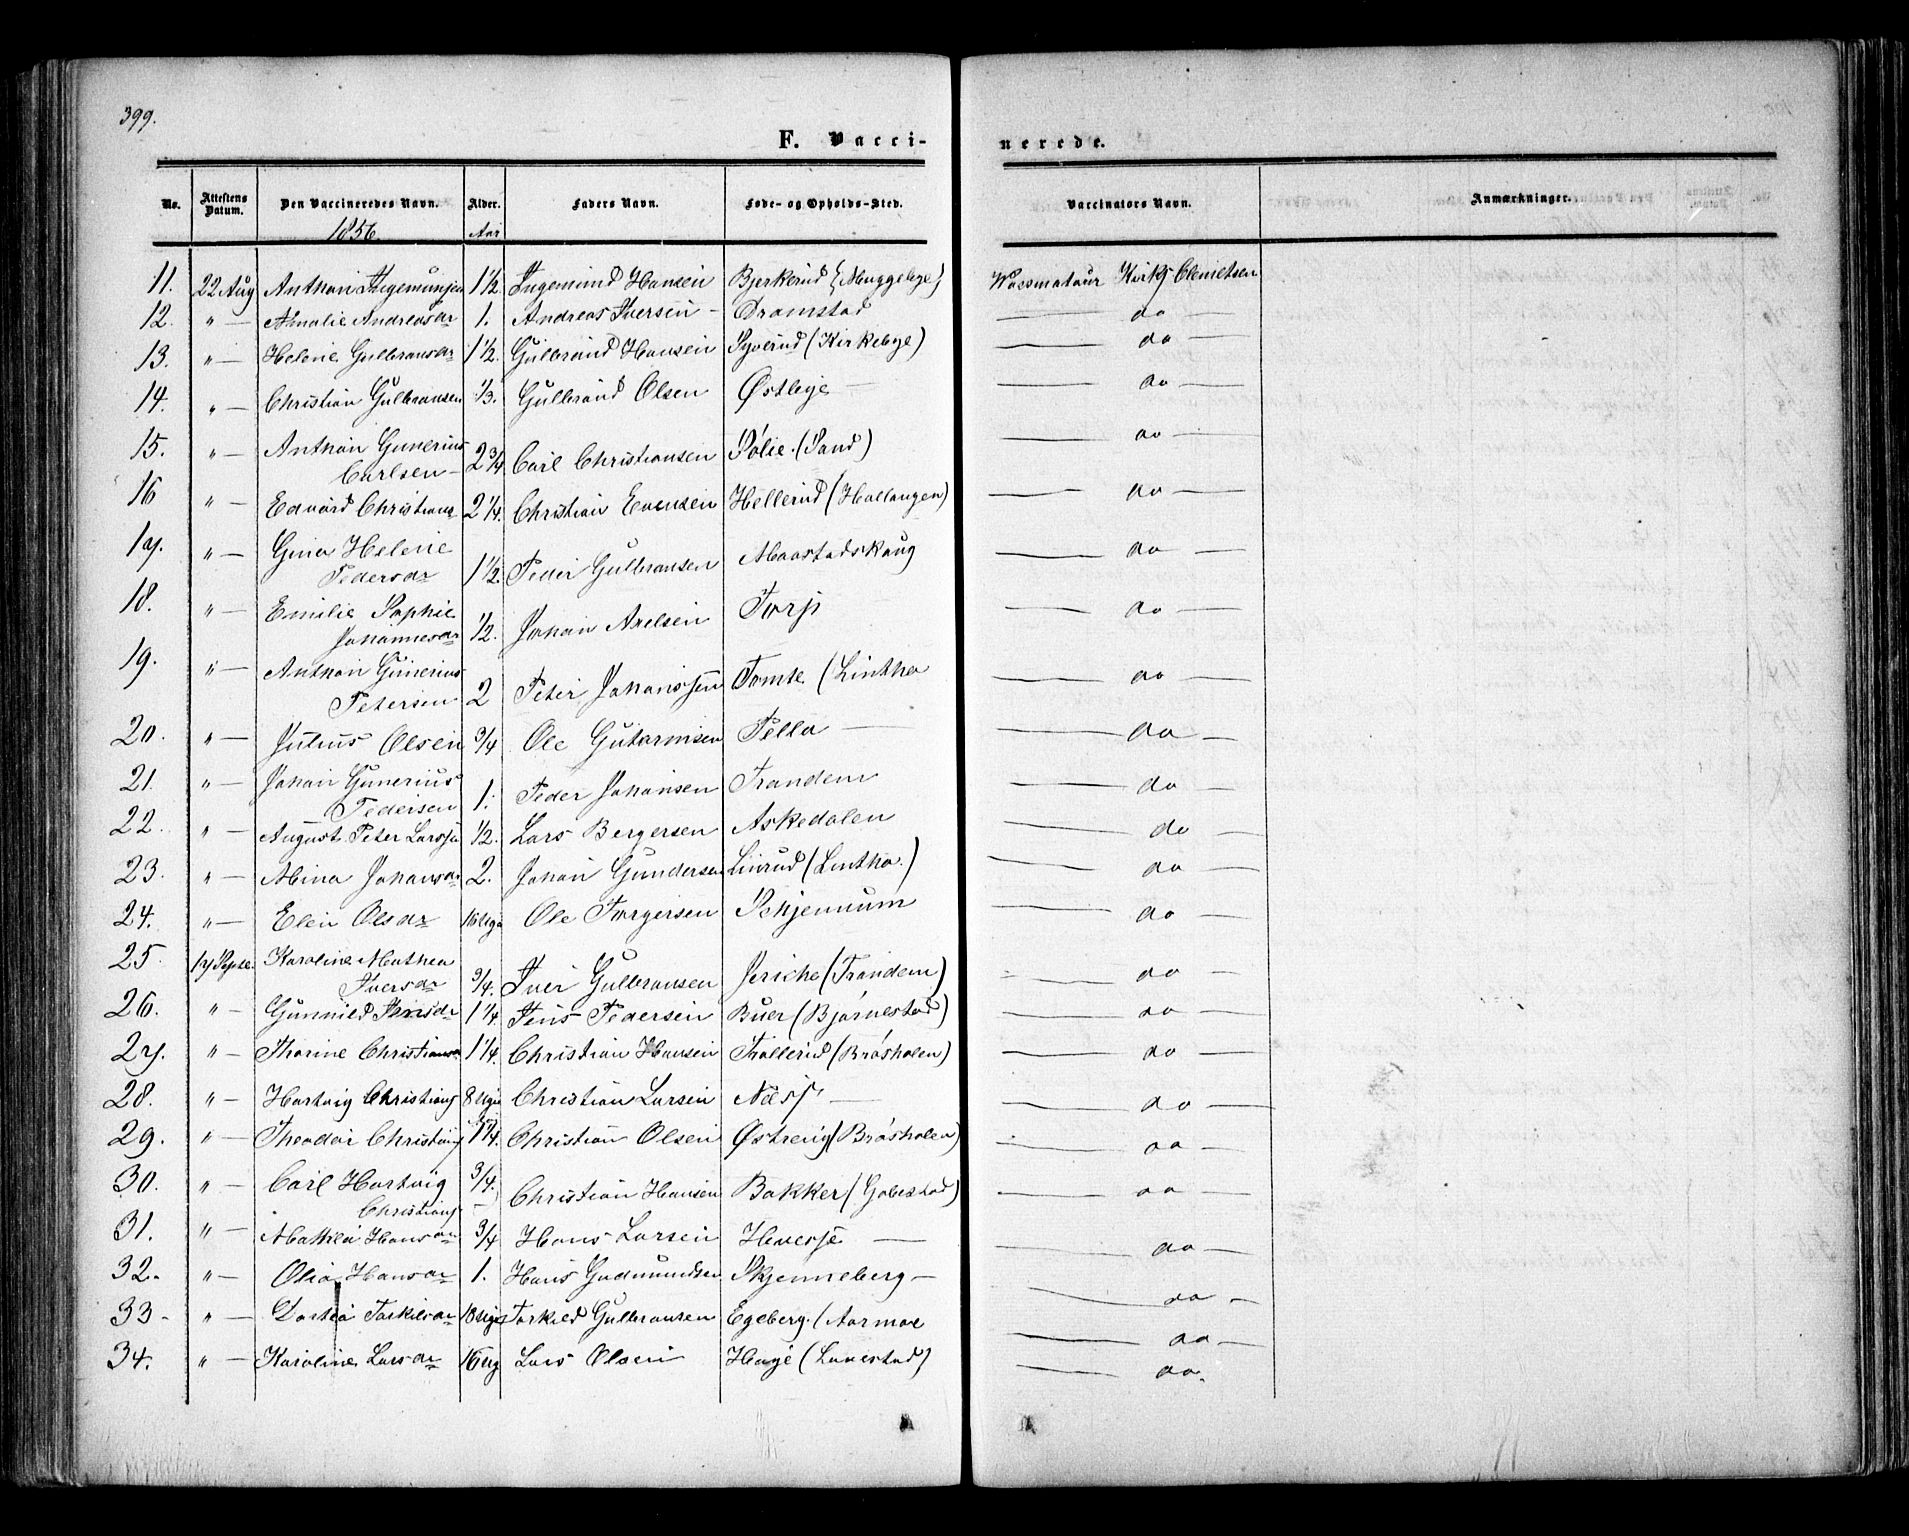 399.
F. Vacci-
nerede.
No. Attestens Datum. Den Vaccineredes Navn. Alder. Faders Navn. Føde- og Opholds-Sted. Vaccinators Navn. Anmærkninger.
1856. Aar
11. 22 Aug Anthon Ingemunsen 1 1/2. Ingemund Hansen Bjerkerud (Muggebye) Clemetsen
12. " — Amalie Andreasdr 1. Andreas Iversen — Dramstad — do —
13. " — Helene Gulbransdr 1 1/2. Gulbrand Hansen Syverud (Kirkebye) — do —
14. " — Christian Gulbransen 1/3. Gulbrand Olsen Østbye — — do —
15. " — Anthon Gunerius
Carlsen — 2 3/4 Carl Christiansen Solie. (Sand) — do —
16 " — Edvard Christians 2 1/4. Christian Evensen Hellerud (Hollangen) — do —
17. " — Gina Helene
Pedersdr 1 1/2. Peder Gulbransen Maastadskaug — do —
18. " — Emilie Sophie
Johannesdr 1/2. Johan Axelsen Torp — do —
19. " — Anthon Gunerius
Petersen 2 Peter Johanssen Tomte (Lintho — do —
20. " — Julius Olsen 3/4 Ole Gutormsen Pella — — do —
21. " — Johan Gunerius
Pedersen 1. Peder Johansen Trandem — do —
22. " — August Peter Larssen 1/2. Lars Bergersen Askedalen — do —
23. " — Mina Johansdr 2. Johan Gundersen Linrud (Lintho.) — do —
24. " — Elen Olsdr 16 Uge Ole Torgersen Schjennum — do —
25. 17 Septe. Karoline Mathea
Iversdr 3/4. Iver Gulbransen Jeriche (Trandem) — do —
26. " — Gunnild Jensdr 1 1/4. Jens Pedersen Buer (Bjørnestad) — do —
27. " — Thorine Christiansdr 1 1/4. Christian Hansen Trollerud (Brøsholen) — do —
28. " — Hartvig Christians 8 Uger Christian Larsen Næss — — do —
29. " — Theodor Christians 1 1/4. Christian Olsen Østreng (Brøsholen) — do —
30. " — Carl Hartvig
Christians 3/4. Christian Hansen Bakker (Gabestad) — do —
31. " — Mathea Hansdr 3/4 Hans Larsen — do —
32. " — Olia Hansdr 1. Hans Gudmundsen Skjenneberg — — do —
33 - " — Dorthea Torkilsdr 18 Uger Torkild Gulbransen Egeberg. (Aarmoe — do —
34. " — Karoline Larsdr 16 Ug Lars Olsen Hage (Lauestad) — do.